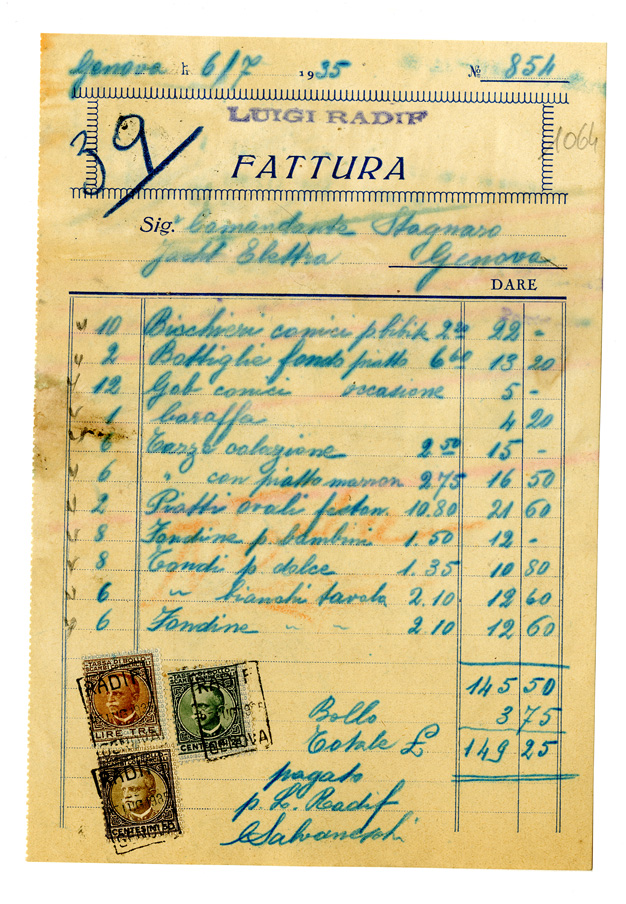 Genova li 6/7 1935 № 854
LUIGI RADIF
39
1064
FATTURA
Sig. Comandante Stagnaro
Jacht Elettra Genova
DARE
10 Bischieri conici p. bibite 2.20 22 -
2 Bottiglie fondo piatto 6.60 13 20
12 Gob conici occasione 5 -
1 Caraffa 4 20
6 Tazze colazione 2.50 15 -
6 " con piatto marron 2.75 16 50
2 Piatti ovali 10.80 21 60
8 Fondine p. bambini 1.50 12 -
8 Tondi p. dolce 1.35 10 80
6 " bianchi tavola 2.10 12 60
6 Fondine " " 2.10 12 60
145 50
Bollo 3 75
Totale £ 149 25
pagato
p. L. Radif
Salvaneschi
TASSA DI BOLLO
RADIF
LIRE TRE
GENOVA
RADIF
CENTESIMI
GENOVA
RADIF
CENTESIMI 50
GENOVA